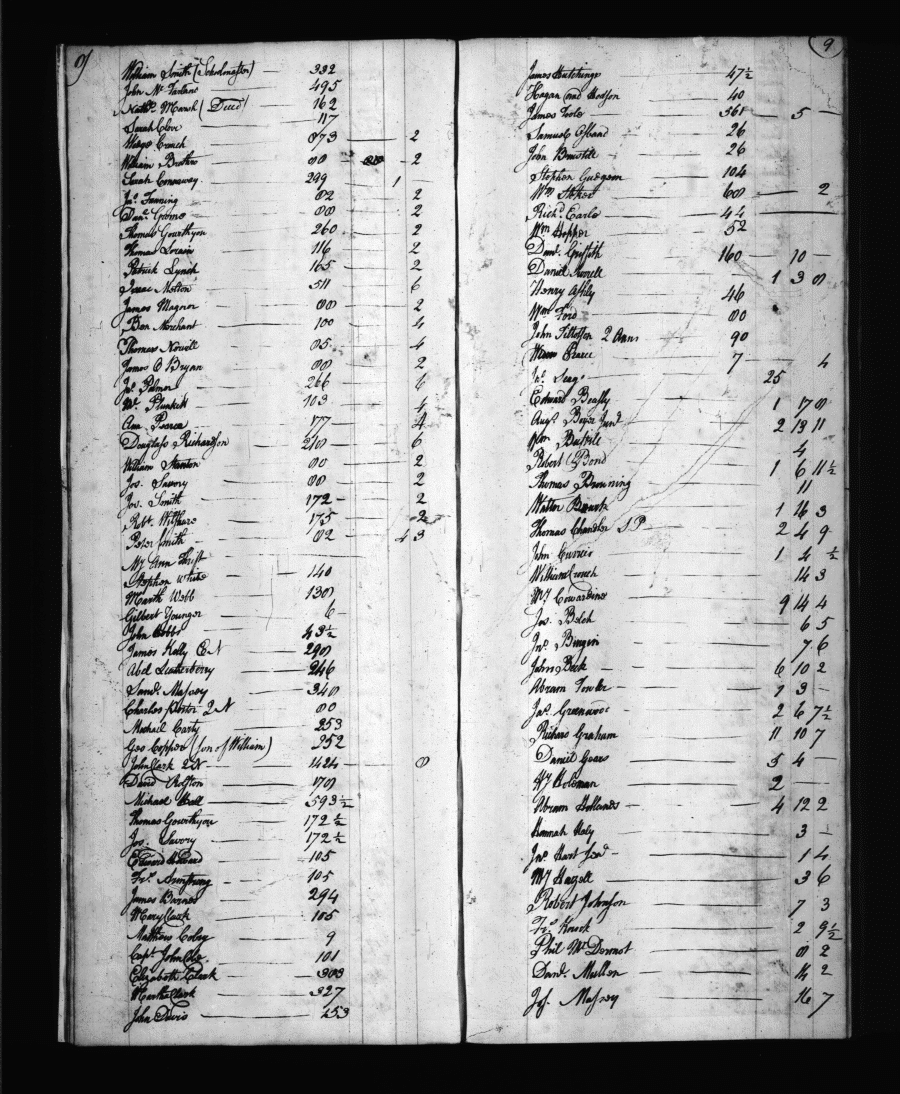 9
William Smith (Schoolmaster) — 332
John Mc Farlane 495
Nathl. Marsh (Deced) 162
Sarah Clow 117
873 2
William 80 2
Sarah Conaway 299 1
Jas. Fanning 82 2
Danl. Greene 88 2
Thomas Gourthyon 260 2
Thomas 116 2
Patrick Lynch 165 2
Isaac Melton 511 6
James Magnor 88 2
Ben Merchant 100 4
Thomas Norvill 85 4
James O Bryan 88 2
Jo. Palmer 266 6
Wm. Plunkett 103 4
Ann Pearce 77 4
Douglass Richardson 218 6
William Stanton 80 2
Jos. Savory 88 2
Jos. Smith 172 2
Robt. 175 2
Peter Smith 82 4 3
My Ann Thrift
Stephen White 140
Marth Webb 138
Gilbert Younger 6
John Cobbs 43½
James Kelly E N 298
Abel Leatherberry 246
Sand. Massey 348
Charles 2 N 80
Michail Carty 253
Geo Copper (son of William) 252
John Clark 2 N 1424 8
David Rolston 178
Michael Hall 593½
Thomas Gourthyon 172½
Jos. Savory 172½
Edward 105
Armstrong 105
James Barnes 294
Mary Clark 105
Matthew Coley 9
Capt. John 101
Elizabeth Clark 303
Martha Clark 327
John Davis 253
9
James Hutchings 47½
Hagan and Hodson 40
James Toole 361 5
Samuel Osband 26
John 26
Stephen Gudgeon 104
Wm. Stokes 60 2
Richd. Earle 44
Wm Hopper 52
Danl. Griffith 160 10
Daniel 1 3 8
Henry Ashly 46
Wm. Ford 80
John Tillotson 2 Anns 90
Pearce 7 4
25
Edward Beasly 1 17 8
Augt. Boyer 2 13 11
4
Robert Bond 1 6 11½
Thomas Browning 11
Walter 1 16 3
Thomas Chandler S P 2 4 9
John 1 4 ½
William Crouch 14 3
My Cowardine 9 14 4
Jos. Belch 6 5
Jno. 7 6
John Beck 6 10 2
Abram Fowler 1 3
Jas. Greenwood 2 6 7½
Richard Graham 11 10 7
Daniel Gears 5 4
My Holeman 2
Abram Hollands 4 12 2
Hannah Haly 3
Jno. Hart 1 4
My 3 6
Robert Johnson 7 3
2 9½
Phil Mc Dermot 8 2
Danl. Mullon 14 2
Massey 16 7